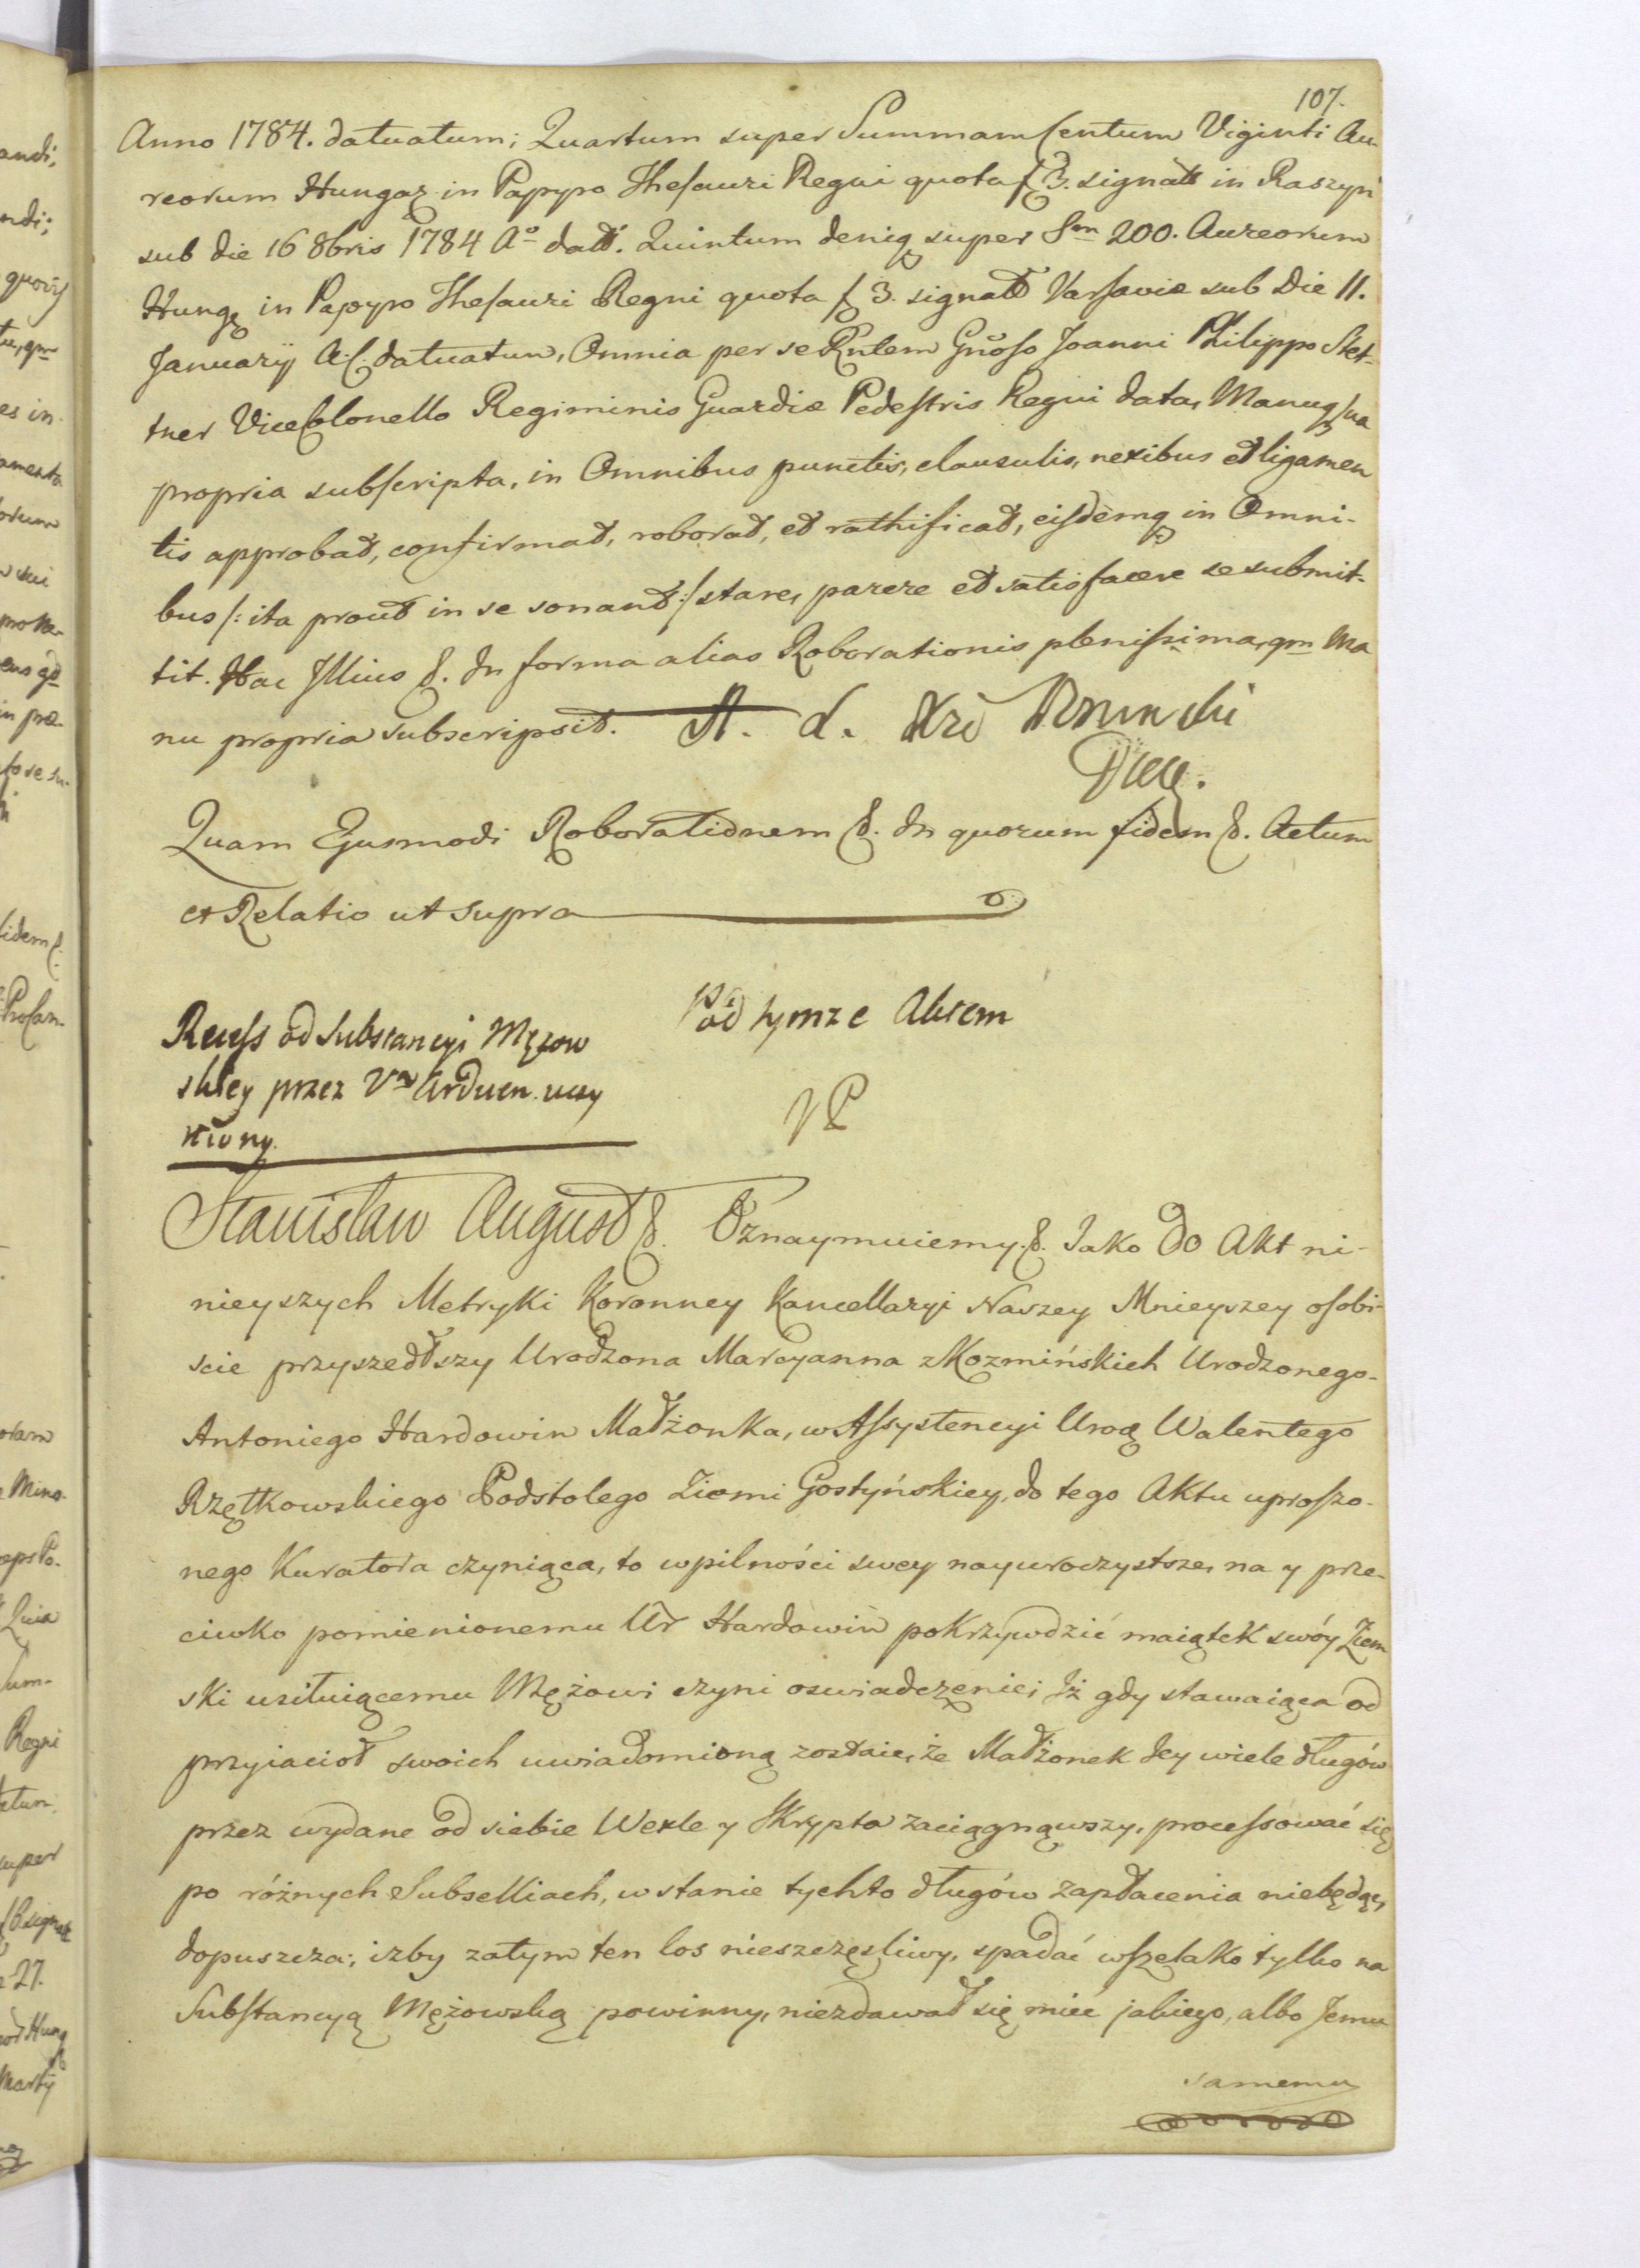 107.
Anno 1784. datuatum; Quartum super Summam Centum Viginti Au-
reorum Hungaꝝ in Papyro Thesauri Regni quota f 3. signatt in Raszyn
sub die 16 8bris 1784 Aº datt. Quintum deniq super Sm 200. Aureorum
Hung in Papyro Thesauri Regni quota f 3. signatt Varsaviæ sub Die 11.
January A. C. datuatum, Omnia per se Rntem Gnoso Joanni Philippo Stet-
tner ViceColonello Regiminis Guardiæ Pedestris Regni data, Manuq sua
propria subscripta, in Omnibus punctis, clausulis, nexibus et ligamen
tis approbat, confirmat, roborat, et rathificat, eisdemq in Omni-
bus /: ita prout in se sonant :/ stare, parere et satisfacere se submit-
tit. Hac Illius &. In forma alias Roborationis plenissima, qm Ma
nu propria subscripsit. A. d.
Quam Ejusmodi Roborationem &. In quorum fidem &. Actum
et Relatio ut supra
Recess od Substancyi Mężow
skiey przez Vm Arduen uczy
niony.
Pod tymze Aktem
VP
Stanisław August &. Oznaymuiemy &. Jako do Akt ni-
nieyszych Metryki Koronney Kancellaryi Naszey Mnieyszey osobi-
scie przyszedłszy Urodzona Maryanna z Kozmińskich Urodzonego
Antoniego Hardowin Małżonka, w Assystencyi Urog Walentego
Rzętkowskiego Podstolego Ziemi Gostyńskiey, do tego Aktu uproszo-
nego Kuratora czyniąca, to w pilności swey nayuroczystsze, na y prze-
ciwko pomienionemu Ur Hardowin pokrzywdzić maiątek swóy Ziem
ski usiłuiącemu Mężowi czyni oswiadczenie; Iż gdy stawaiąca od
przyiacioł swoich uwiadomioną zostaie, że Małżonek Jey wiele długów
przez wydane od siebie Wexle y Skrypta zaciągnąwszy, processować się
po różnych Subselliach, w stanie tychto długów zapłacenia niebędąc,
dopuszcza; izby zatym ten los nieszczęsliwy, spadać wszelako tylko na
Substancyą Mężowską powinny, niezdawał się mieć jakiego, albo Jemu
samemu